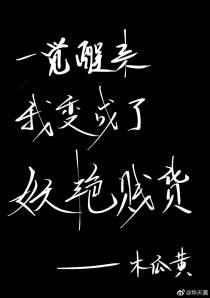 一觉醒来
我变成了
妖艳贱货
——木瓜黄